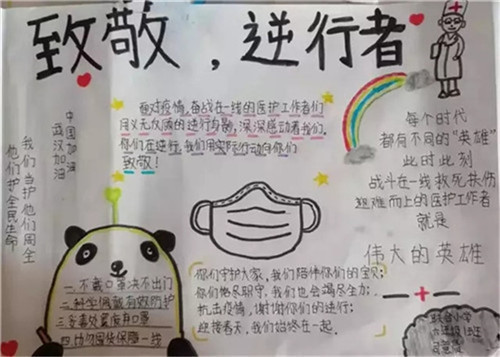 致敬，逆行者
中国加油
武汉加油
我们当护他们周全
他们护全民生命
面对疫情，奋战在一线的医护工作者们
用义无反顾的逆行身影，深深感动着我们。
你们在逆行，我们用实际行动向你们
致敬！
每个时代
都有不同的“英雄
此时此刻
战斗在一线救死扶伤
迎难而上的医护工作者
就是
伟大的英雄
一.不戴口罩决不出门
二.科学佩戴有效防护
三.妥善处置废弃口罩
四.口罩保障一线
你们守护大家，我们陪伴你们的宝贝；
你们恪尽职守，我们也会竭尽全力；
抗击疫情，谢谢你们的逆行；
迎接春天，我们始终在一起。
小学